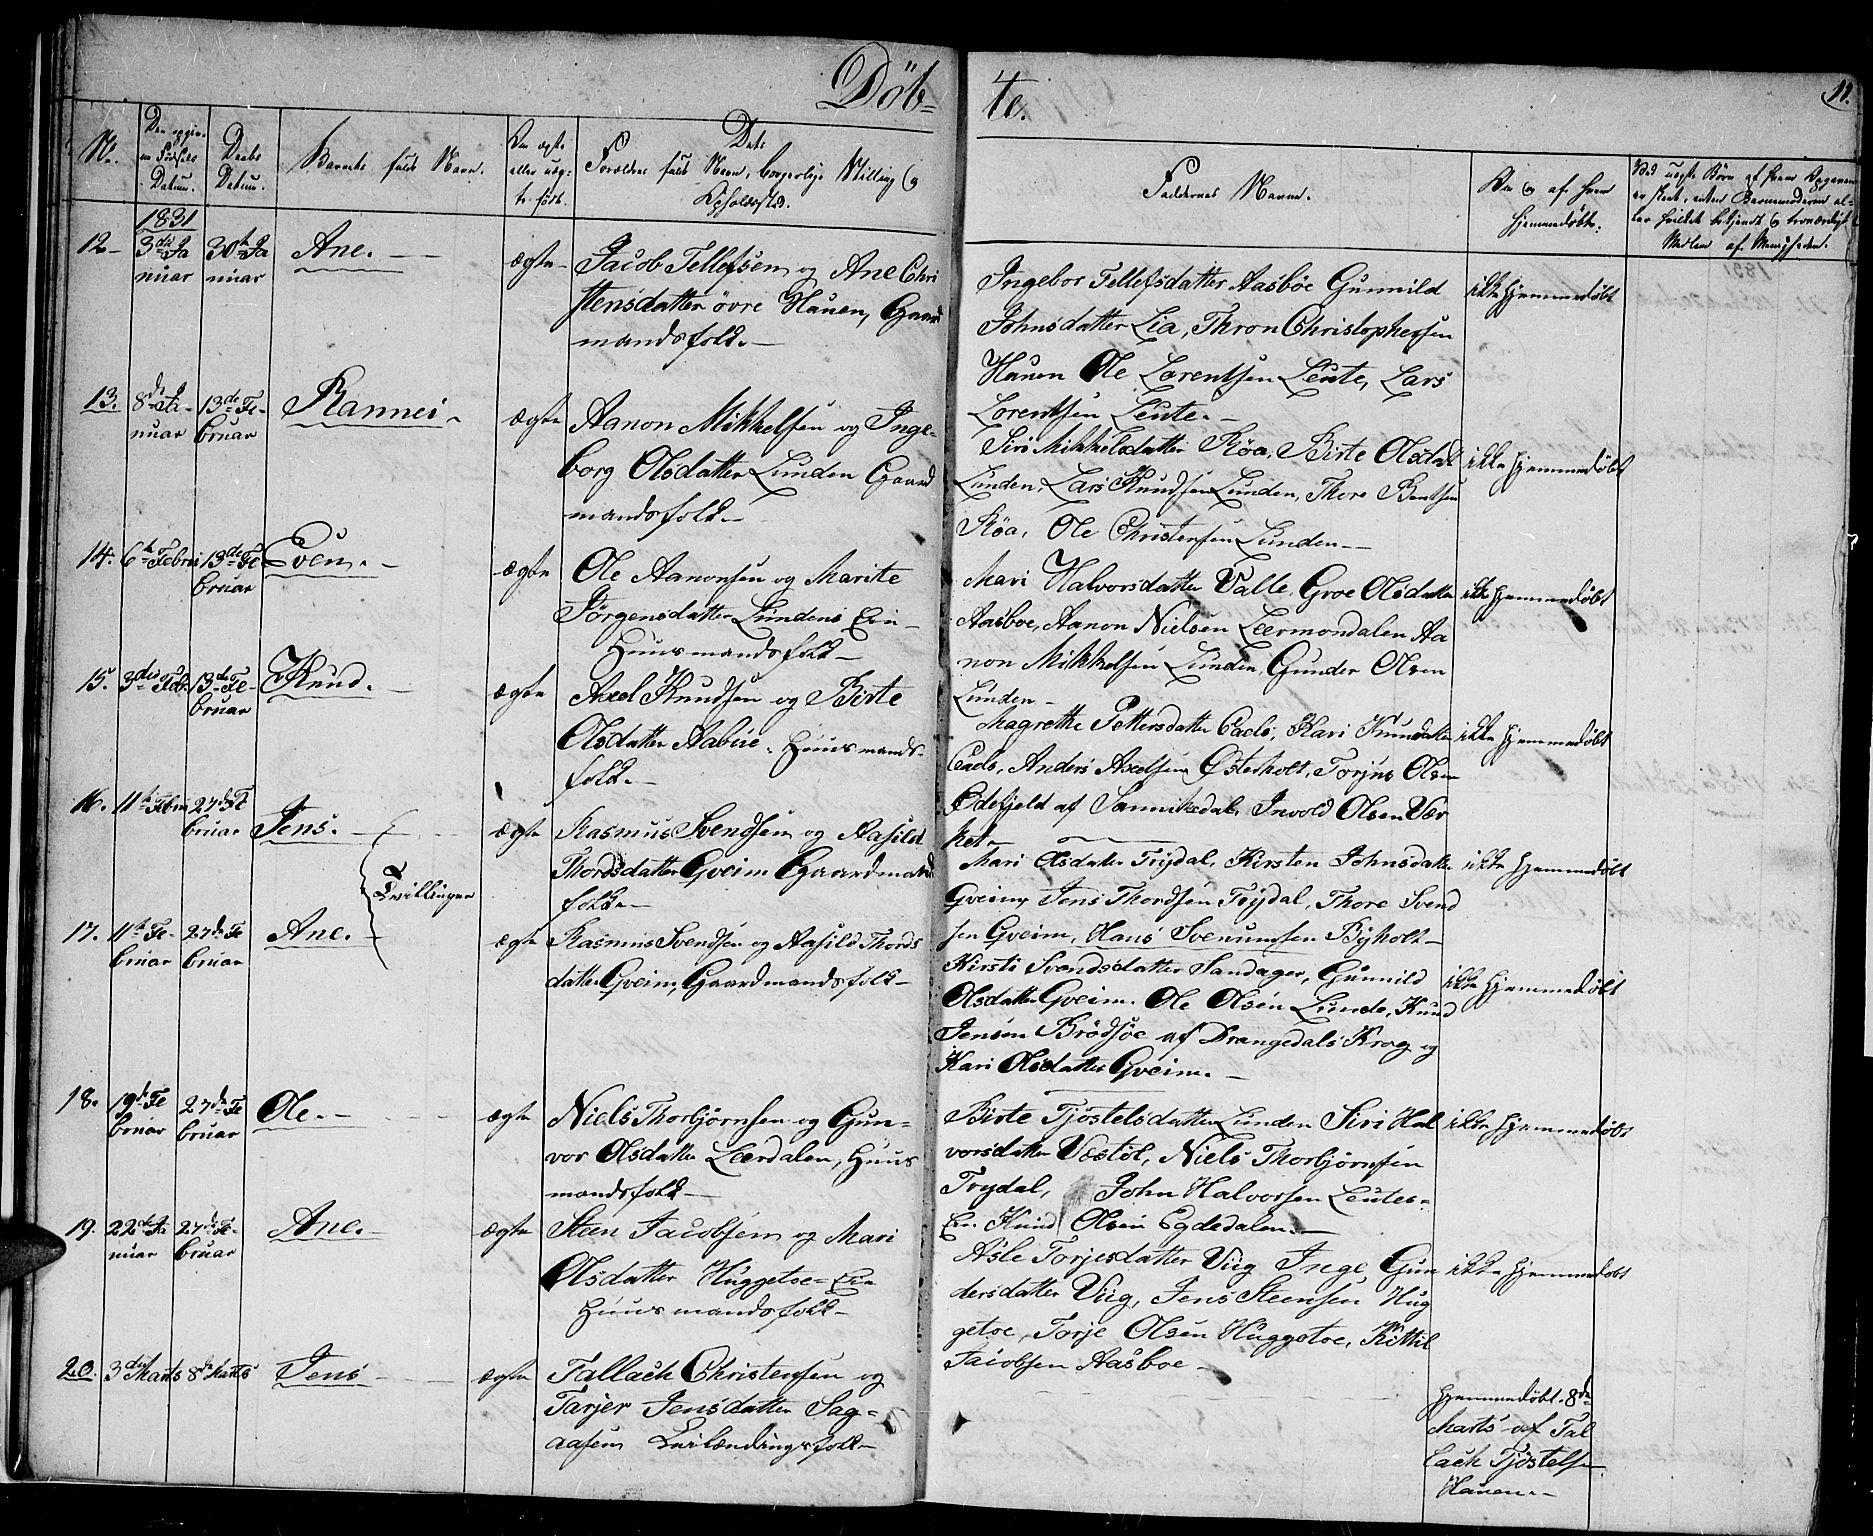 Döb= te.
11.
No.
Den opgiv-
ne Fødsels
Datum.
Daabs
Datum.
Barnets fulde Navn.
Om ægte
eller uæg-
te født.
Dets
Forældres fulde Navn, borgerlige Stilling og
Opholdssted.
Faddernes Navne.
Om og af hvem
hjemmedøbt.
Ved uægte Børn af hvem Angivelsen
er skeet, enten Barnemoderen el-
ler hvilket bekjendt og troværdigt
Medlem af Menigheden.
1831
12 -
3die Ja
nuar
30te Ja
nuar
Ane. -
ægte -
Jacob Tellefsen og Ane Chri
stensdatter övre Hauen, Gaard
mandsfolk. -
Ingebor Tellefsdatter Aasböe Gunnild
Johnsdatter Lia, Thron Christophersen
Hauen Ole Lorentsen Leute, Lars
Lorentsen Leute. -
ikke hjemmedøbt
13.
8de Ja-
nuar
13de Fe-
bruar
Rannei -
ægte
Aanon Mikkelsen og Inge-
borg Olsdatter Lunden Gaard
mandsfolk -
Siri Mikkelsdatter Röa, Birte Olsdat
Lunden, Lars Knudsen Lunden, Thore Bentsen
Röa, Ole Christensen Lunden -
ikke hjemmedøbt
14.
6te Febru
13de Fe
bruar
Even. -
ægte
Ole Aanonsen og Marite
Jörgensdatter Lundens Ein
Huusmandsfolk -
Mari Halvorsdatter Valle, Groe Olsdatter
Aasboe, Aanon Nielsen Leermondalen Aa
non Mikkelsen Lunden, Gunder Olsen
Lunden -
ikke hjemmedøbt
15.
3die Feb.
13de Fe-
bruar
Knud. -
ægte
Axel Knudsen og Birte
Olsdatter Aabüe. Huusmands-
folk. -
Magrethe Pettersdatter Eads, Kari Knundatter
Eads, Anders Axelsen Østerholt, Torjus Olsen
Ødefjeld af Sannikedal, Invold Olsen Vær
ket -
ikke hjemmedøbt
16.
11te Febru
27de Fe
bruar
Jens. -
Tvillinger
ægte
Rasmus Svendsen og Aasild
Thordsdatter Gveim Gaardmands
folk. -
Mari Olsdatter Tröydal, Kirsten Johnsdatter
Gveim, Jens Thordsen Töydal, Thore Svend
sen Gveim, Hans Svenumsen Byholt -
ikke hjemmedøbt
17.
11te Fe-
bruar
27de Fe
bruar
Ane. -
ægte
Rasmus Svendsen og Aasild Thords
datter Gveim, Gaardmandsfolk -
Kirsti Svendsdatter Sandager, Gunnild
Olsdatter Gveim. Ole Olsen Lunde, Knud
Jensen Brödsöe af Drangedals Krog og
Kari Olsdatter Gveim. -
ikke hjemmedøbt
18.
19de Fe
bruar
27de Fe
bruar
Ole. -
ægte
Niels Thorbjörnsen og Gun=
vor Olsdatter Leerdalen, Huus
mandsfolk -
Birte Tjöstelsdatter Lunden Siri Hal
vorsdatter Væstöl, Niels Thorbjörnsen
Trydal, John Halvorsen Leutes=
Ei. Knud Olsen Egdedalen. -
ikke hjemmedøbt
19.
22de Ja
nuar
27de Fe-
bruar
Ane. -
ægte
Steen Jacobsen og Mari
Olsdatter Huggetoe= Ein
Huusmandsfolk -
Asle Torjesdatter Viig Inge Gun
dersdatter Viig, Jens Steensen Hug
getoe, Torje Olsen Huggetoe, Kittil
Jacobsen Aasboe -
ikke hjemmedøbt
20.
3die Marts
8de Marts
Jens -
ægte
Tallach Christensen og
Tarjer Jensdatter Sag=
aasen Indlændingsfolk -
hjemmedøbt 8de
Marts af Tal
lach Tjöstelsen
Hauen. -